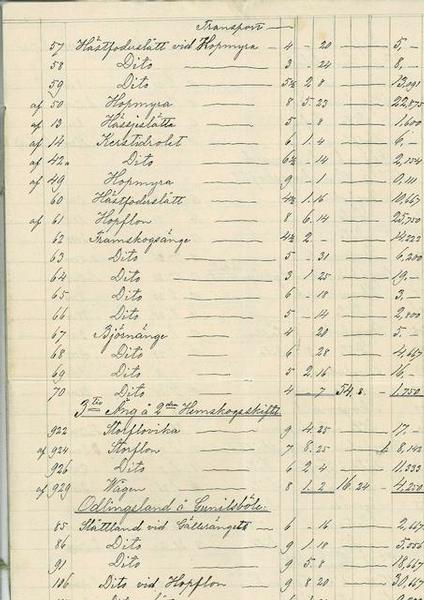 Transport
57 Hästfoderslätt vid Hopmyra 4 - 20 5,-
58 Dito 3 - 24 8,-
59 Dito 5½ 2.8 13,091
af 50 Hopmyra 8 5.23 22,875
af 13 Hässjeslätta 5 - 8 1,600
af 14 Kerstidrolet 6 1.4 6,-
af 42a Dito 6½ - 14 2,154
af 49 Hopmyra 9 - 1 0,111
60 Hästfoderslätt 4½ 1.16 10,667
af 61 Hopflon 8 6.14 25,750
62 Framskogsänge 4½ 2.- 14,222
63 Dito 5 - 31 6,200
64 Dito 3 1.25 19,-
65 Dito 6 - 18 3,-
66 Dito 5 - 14 2,800
67 Björnänge 4 20 5,-
68 Dito 6 28 4,667
69 Dito 5 2.16 16,-
70 Dito 4 - 7 54.8 1,750
3tio Äng å 2dra Hemskogsskiftet
922 Storflovika 9 4.25 17,-
af 924 Storflon 7 8.25 8,143
926 Dito 6 2.4 11,333
af 929 Wägen 8 1.2 16.24 4,250
Odlingsland å Gunilsböle:
85 Slåttland vid Gällsrängets 6 - 16 2,667
86 Dito 9 1.18 5,556
91 Dito 9 5.8 18,667
106 Dito vid Hopflon 9 8.20 30,667